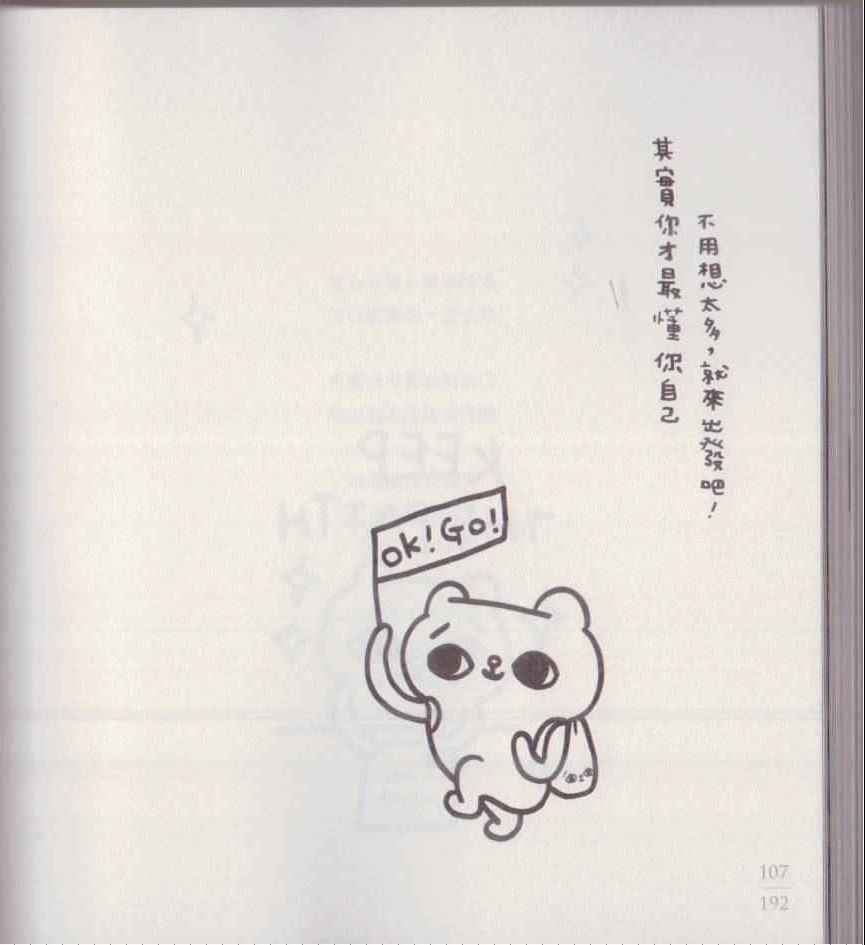 不用想太多，就來出發吧！
其實你才最懂你自己
ok! Go!
107
192